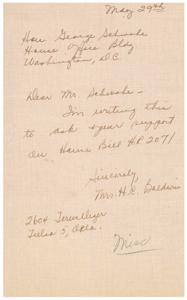 May 29th
Hon George Schwabe
House Office Bldg
Washington, D.C.
Dear Mr. Schwabe-
I'm writing this
to ask your support
on House Bill H.R. 2071
Sincerely,
Mrs. H.C. Baldwin
2604 Terwilleger
Tulsa 5, Okla.
Misc